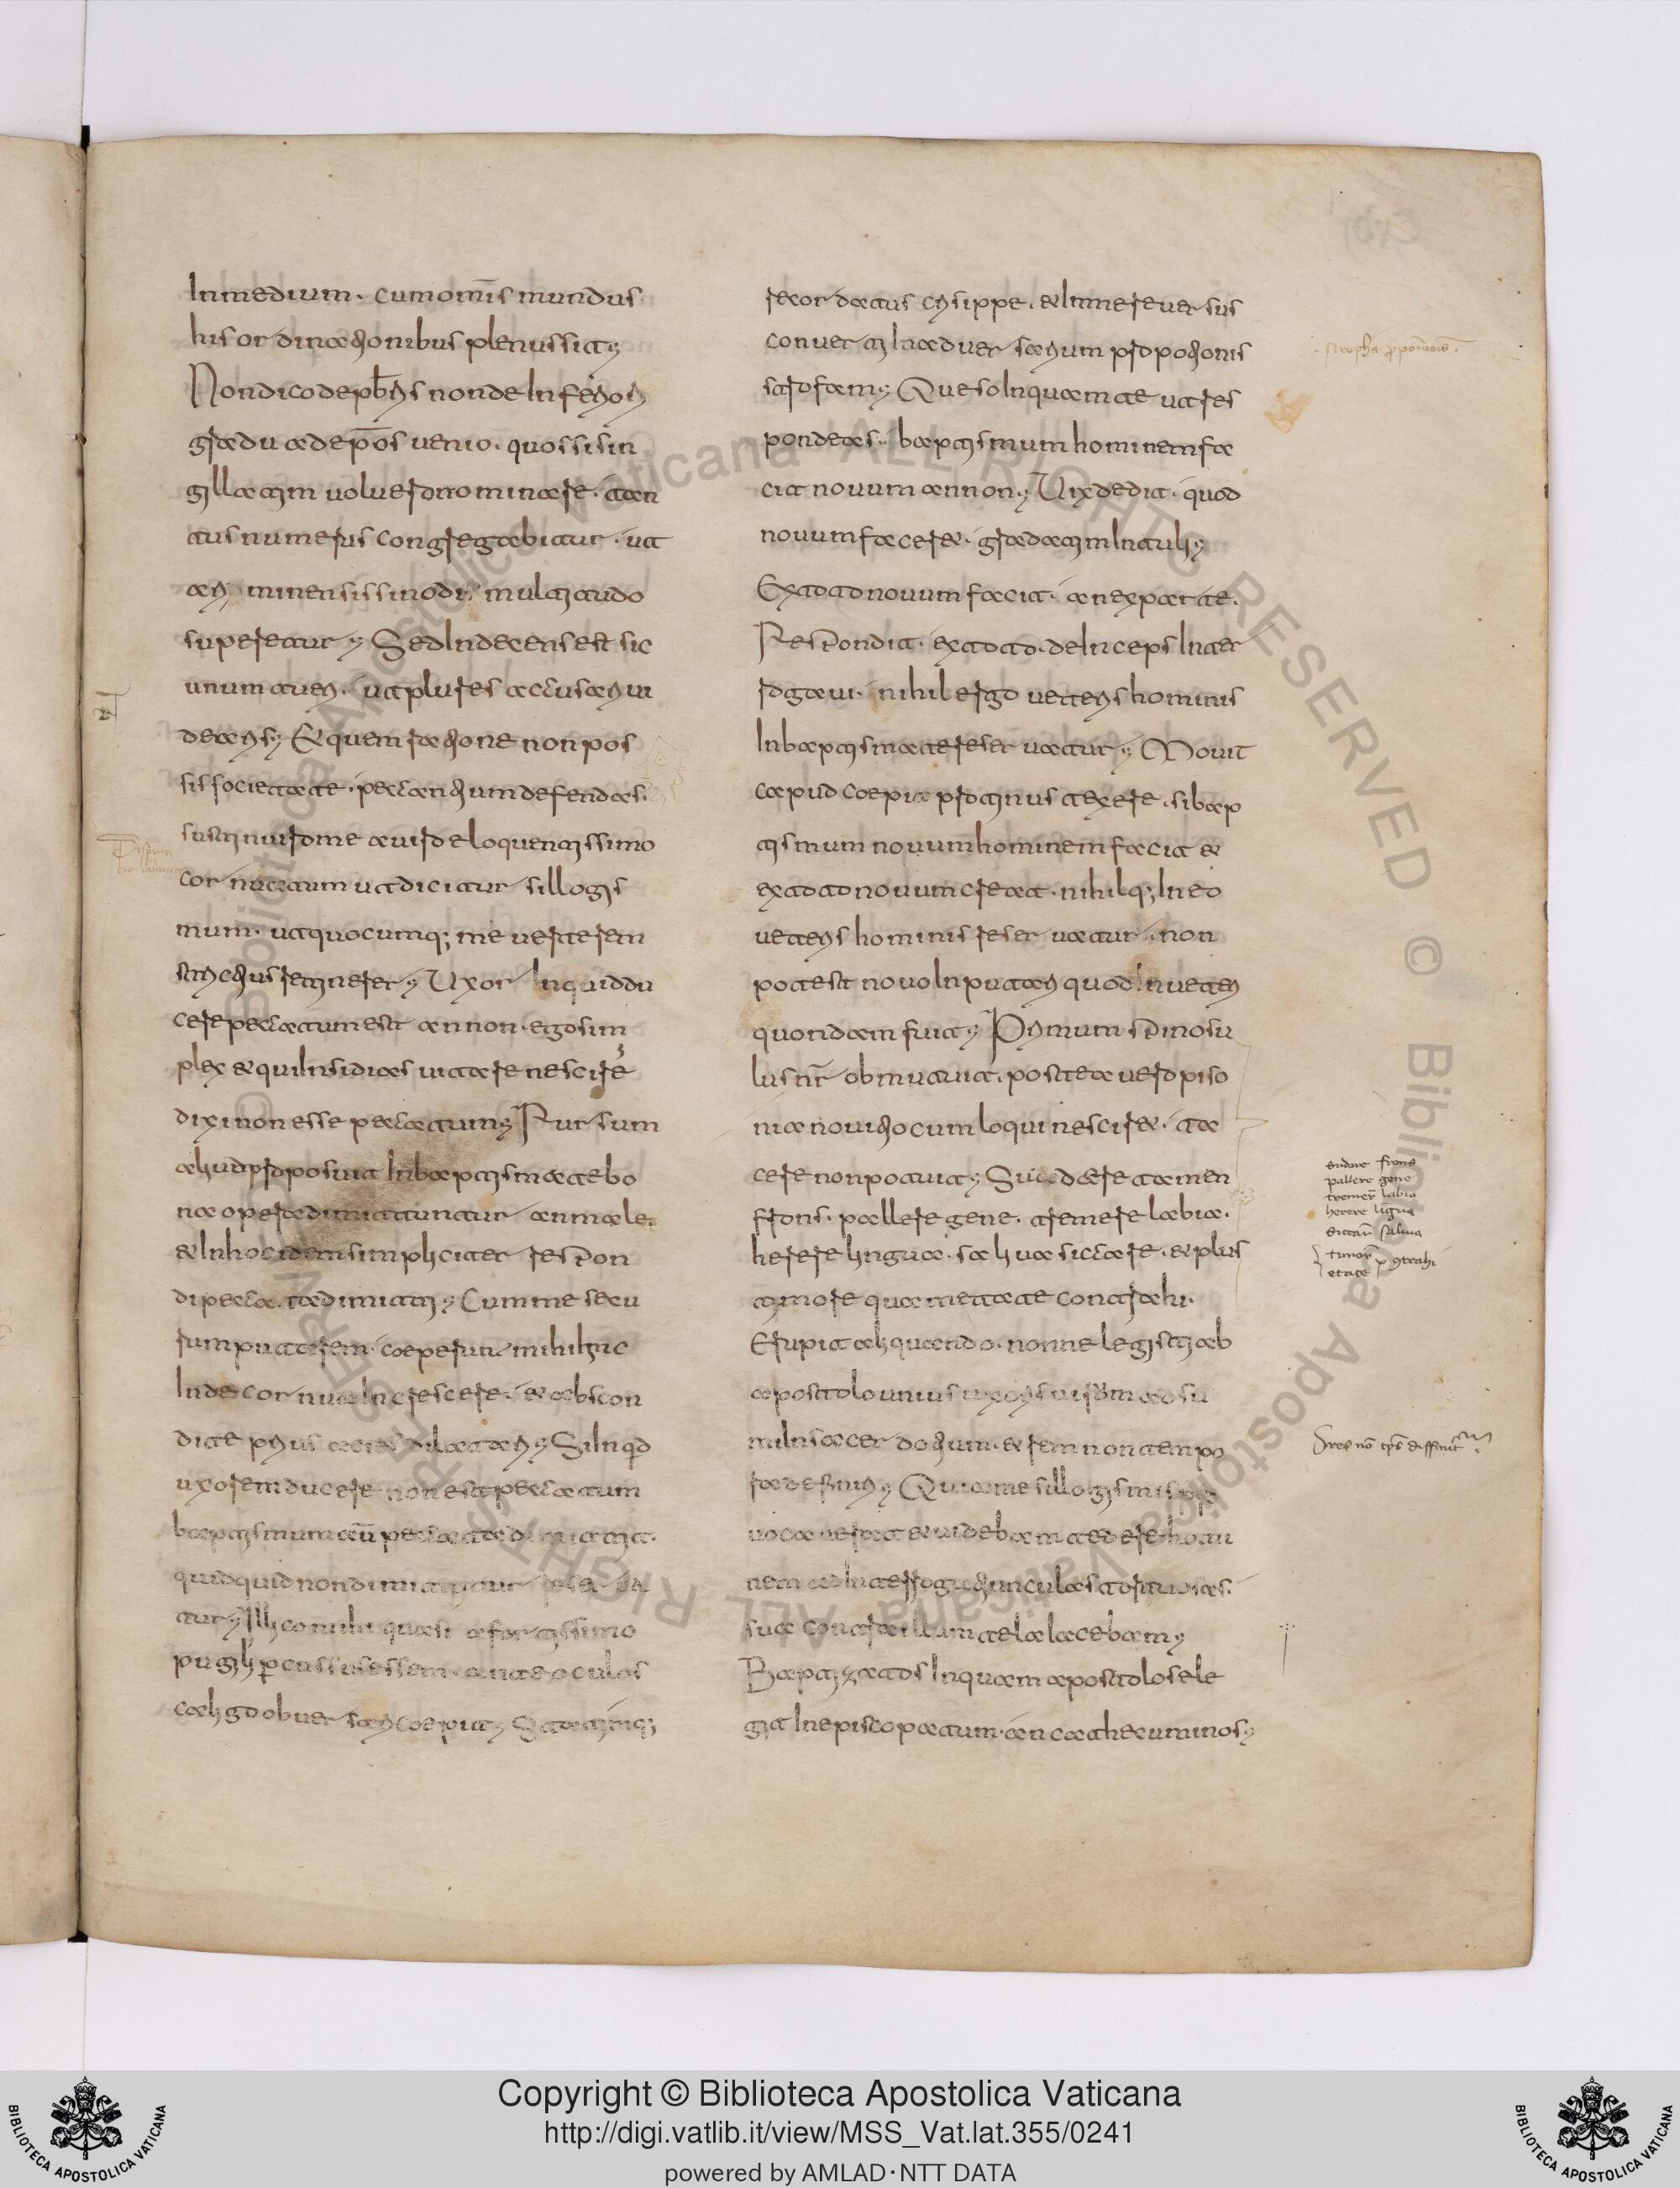 Inmedium. cumom̄is mundus
his ordinationibus plenussit;
Non dico depr̄bris nonde Inferiori
gradu adep̄os uenio. quossisin
gillatim uoluero nominare. tan
tus numerus congregabitur. ut
ariminensissinodi multitudo
superetur; SedIndecens est sic
unum tueri. ut plures accusari ui
dearis; Et quem ratione non pos
sis societate. peccantium defendas.
sustinui rome auiro eloquentissimo
cornutum ut dicitur sillogis
mum. ut quocumq; me uerterem
strictius retinerer; Uxor Inquid du
cere peccatum est an non. ego sim
plex et qui Insidias uitare nescirē
dixi non esse peccatum; Rursum
aliud proposuit Inbaptismate bo
na opera dimittuntur an male.
et Inhoc idem simpliciter respon
di peccata dimitti; Cumme secu
rum putarem. coeperunt mihi hinc
Inde cornua Increscere. et abscon
dite prius acies dilatari; Si Inqd
uxorem ducere non est peccatum
baptismum autē peccata dimittit.
quidquid non dimittitur reser ua
tur; Ilico mihi quasi a fortissimo
pugili p̱cussus essem. ante oculos
caligo obuersari coepit; Statimq;
recordatus crisippe. et Inme reuersus
conuerti Inaduersarium propotionis
strofam; Queso Inquam te ut res
pondeas. baptismum hominem fa
cit nouum an non; Uix dedit. quod
nouum faceret. gradatim Intuli;
Ex toto nouum facit. an ex parte.
Respondit. ex toto. deinceps Inter
rogaui. nihil ergo ueteris hominis
Inbaptismate reseruatur; Mouit
caput coepi protinus texere. si bap
tismum nouum hominem facit et
ex toto nouum creat. nihilq; In eo
ueteris hominis reseruatur. non
potest nouo Inputari quod Inueteri
quondam fuit; Primum spinosu
lus nr̄ obmutuit. postea uero piso
niano uitio cum loqui nesciret. ta
cere non potuit; Sudare tamen
frons. pallere gene. tremere labia.
herere lingua. saliua siccare. et plus
timore quam etate contrahi.
Erupit aliquando. nonne legisti ab
apostolo unius uxoris uirum adsu
mi Insacerdotium. et rem non tempo
ra definiri; Qui ame sillogismis pro
uocauerat et uidebam tedere homi
nem ad Interrogatiunculas tortuosas.
sua contra illum tela iacebam;
Baptizatos Inquam apostolos ele
git Inepiscopatum. an catecuminos;
stropha propōitiōis.
sudare frons
pallere gene
tremer̄ labia
herere lingua
siccar̄ saliua
timor̄ p̱ 9trahi
etate
Copyright © Biblioteca Apostolica Vaticana
http://digi.vatlib.it/view/MSS_Vat.lat.355/0241
powered by AMLAD·NTT DATA
BIBLIOTECA APOSTOLICA VATICANA
BIBLIOTECA APOSTOLICA VATICANA
© Biblioteca Apostolica Vaticana ALL RIGHTS RESERVED © Biblioteca Apostolica Vaticana ALL RIGHTS RESERVED